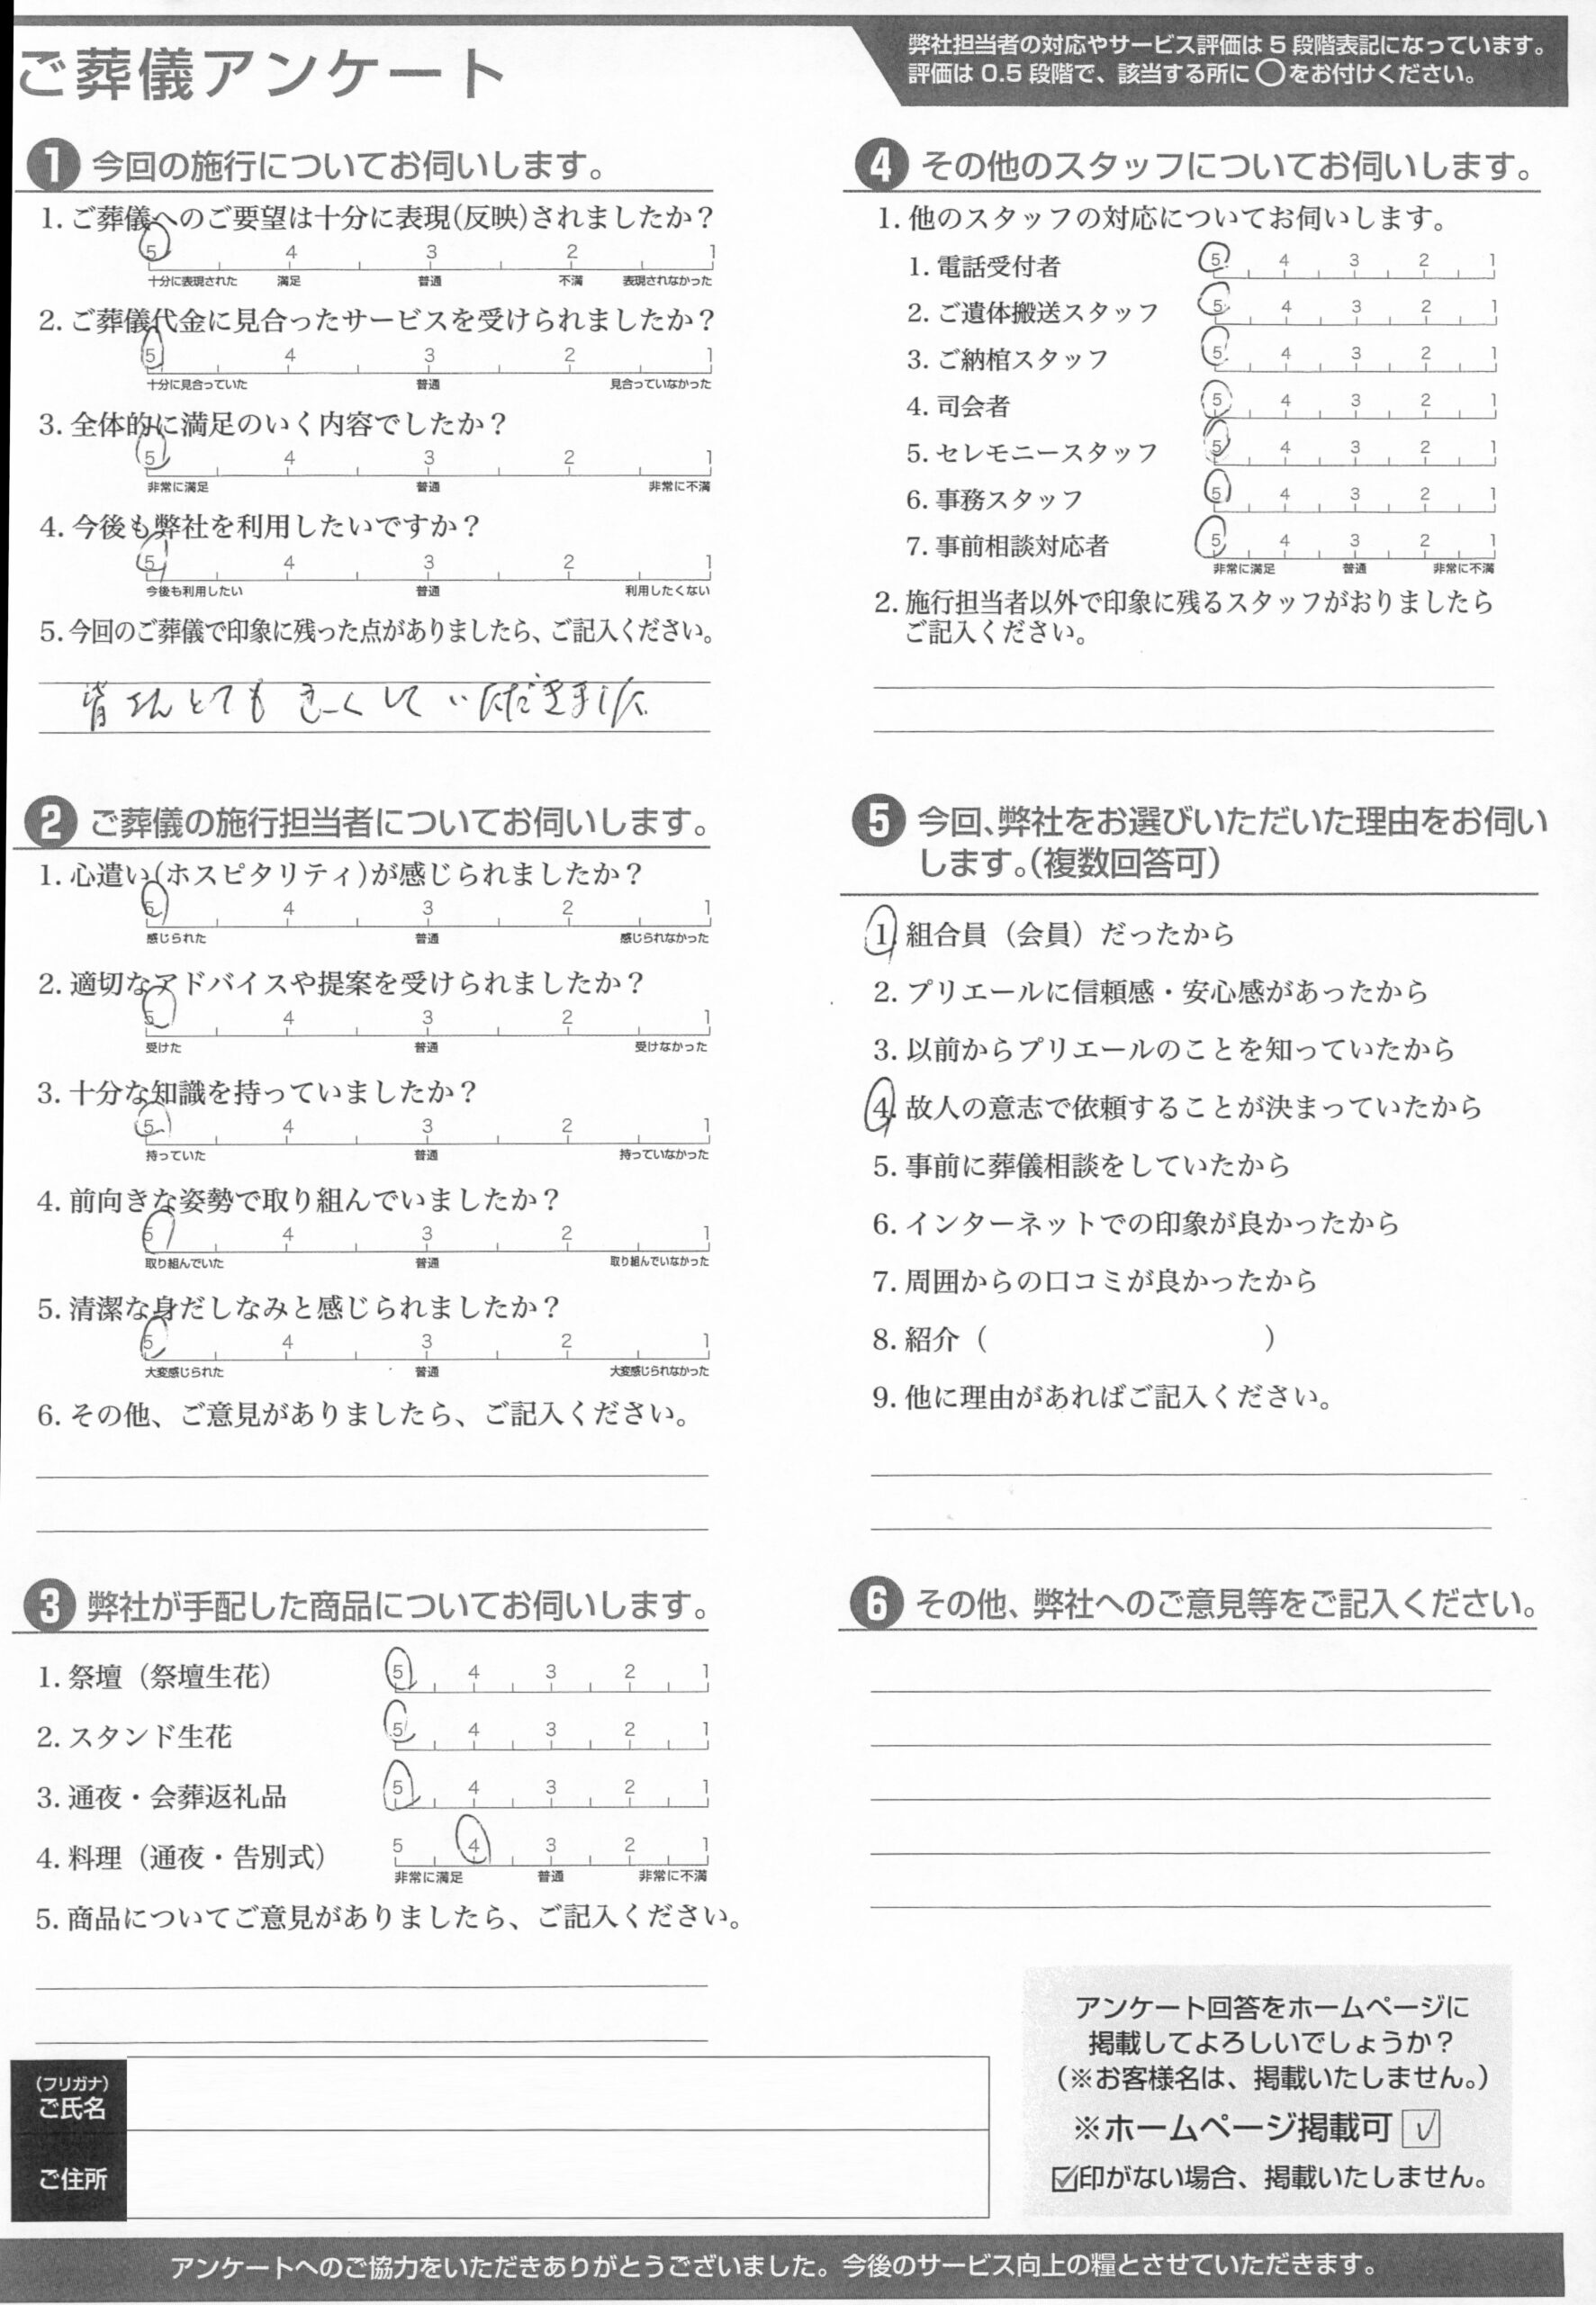 ご葬儀アンケート
弊社担当者の対応やサービス評価は5段階表記になっています。
評価は0.5段階で、該当する所に○をお付けください。
1 今回の施行についてお伺いします。
1. ご葬儀へのご要望は十分に表現(反映)されましたか？
5 4 3 2 1
十分に表現された 満足 普通 不満 表現されなかった
2. ご葬儀代金に見合ったサービスを受けられましたか？
5 4 3 2 1
十分に見合っていた 普通 見合っていなかった
3. 全体的に満足のいく内容でしたか？
5 4 3 2 1
非常に満足 普通 非常に不満
4. 今後も弊社を利用したいですか？
5 4 3 2 1
今後も利用したい 普通 利用したくない
5. 今回のご葬儀で印象に残った点がありましたら、ご記入ください。
皆さんとても良くしていただきました
2 ご葬儀の施行担当者についてお伺いします。
1. 心遣い(ホスピタリティ)が感じられましたか？
5 4 3 2 1
感じられた 普通 感じられなかった
2. 適切なアドバイスや提案を受けられましたか？
5 4 3 2 1
受けた 普通 受けなかった
3. 十分な知識を持っていましたか？
5 4 3 2 1
持っていた 普通 持っていなかった
4. 前向きな姿勢で取り組んでいましたか？
5 4 3 2 1
取り組んでいた 普通 取り組んでいなかった
5. 清潔な身だしなみと感じられましたか？
5 4 3 2 1
大変感じられた 普通 大変感じられなかった
6. その他、ご意見がありましたら、ご記入ください。
3 弊社が手配した商品についてお伺いします。
1. 祭壇（祭壇生花） 5 4 3 2 1
2. スタンド生花 5 4 3 2 1
3. 通夜・会葬返礼品 5 4 3 2 1
4. 料理（通夜・告別式） 5 4 3 2 1
非常に満足 普通 非常に不満
5. 商品についてご意見がありましたら、ご記入ください。
4 その他のスタッフについてお伺いします。
1. 他のスタッフの対応についてお伺いします。
1. 電話受付者 5 4 3 2 1
2. ご遺体搬送スタッフ 5 4 3 2 1
3. ご納棺スタッフ 5 4 3 2 1
4. 司会者 5 4 3 2 1
5. セレモニースタッフ 5 4 3 2 1
6. 事務スタッフ 5 4 3 2 1
7. 事前相談対応者 5 4 3 2 1
非常に満足 普通 非常に不満
2. 施行担当者以外で印象に残るスタッフがおりましたら
ご記入ください。
5 今回、弊社をお選びいただいた理由をお伺い
します。(複数回答可)
1. 組合員（会員）だったから
2. プリエールに信頼感・安心感があったから
3. 以前からプリエールのことを知っていたから
4. 故人の意志で依頼することが決まっていたから
5. 事前に葬儀相談をしていたから
6. インターネットでの印象が良かったから
7. 周囲からの口コミが良かったから
8. 紹介（ ）
9. 他に理由があればご記入ください。
6 その他、弊社へのご意見等をご記入ください。
アンケート回答をホームページに
掲載してよろしいでしょうか？
(※お客様名は、掲載いたしません。)
※ホームページ掲載可 ☑
☑印がない場合、掲載いたしません。
(フリガナ)
ご氏名
ご住所
アンケートへのご協力をいただきありがとうございました。今後のサービス向上の糧とさせていただきます。